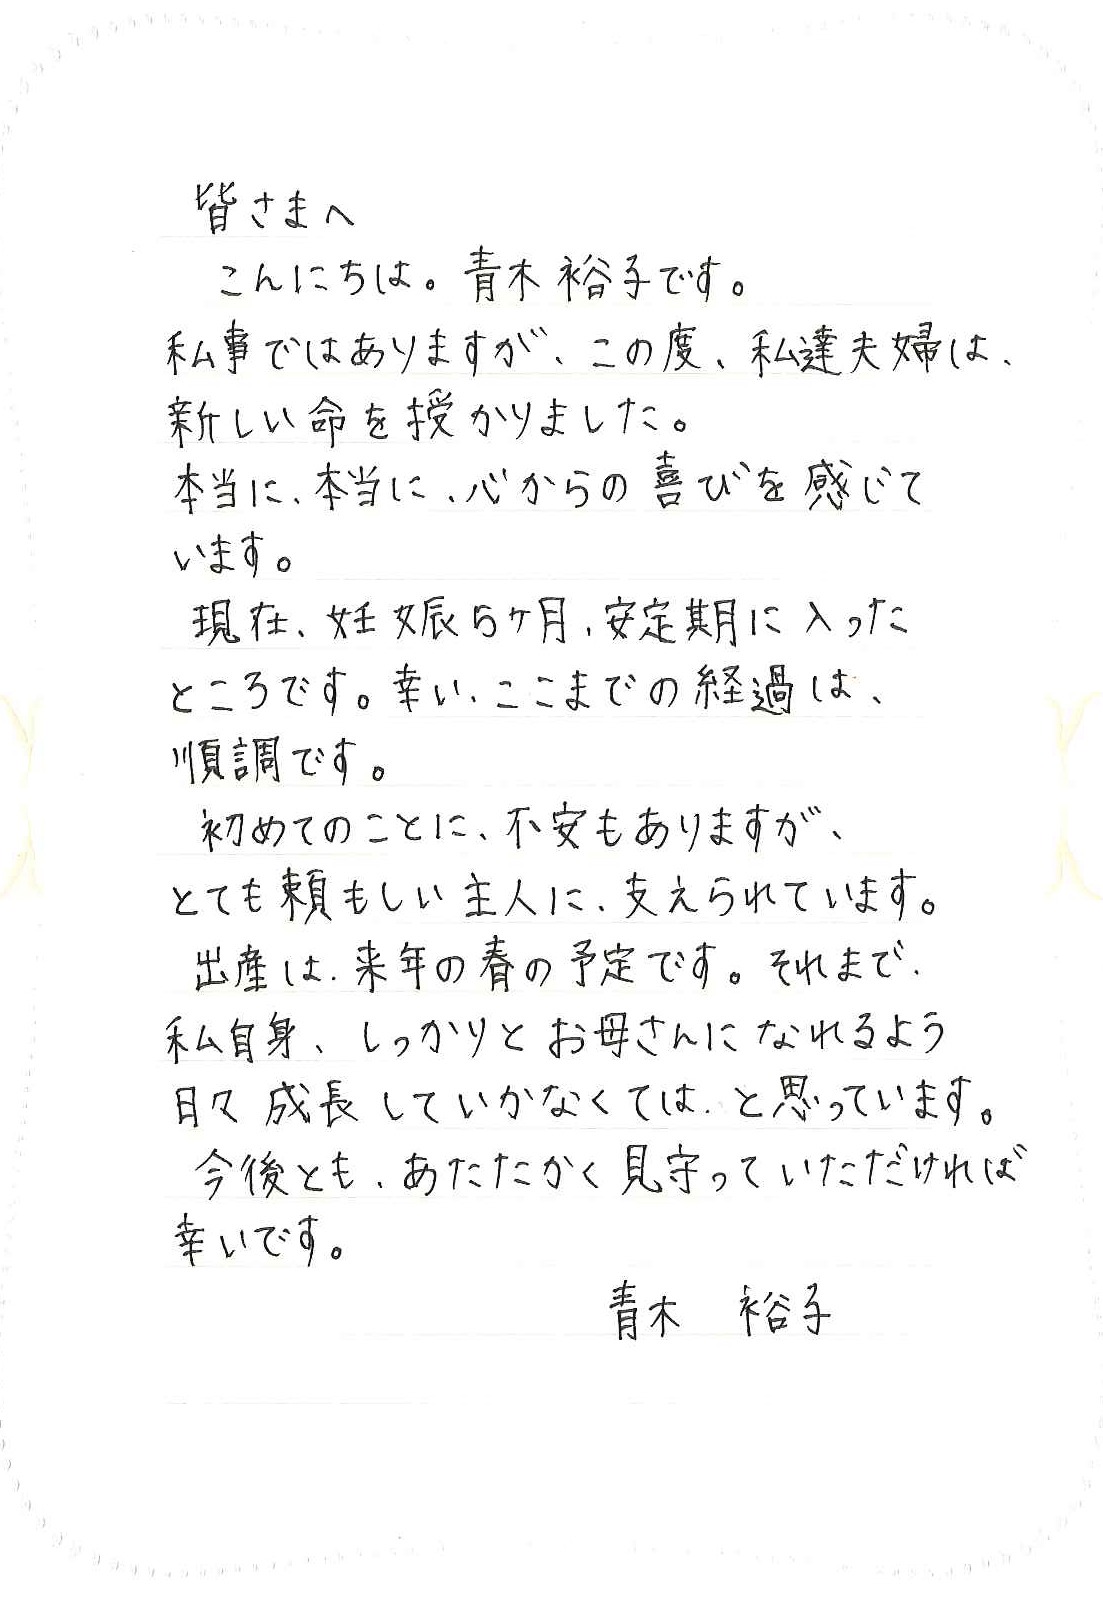 皆さまへ
こんにちは。青木裕子です。
私事ではありますが、この度、私達夫婦は、
新しい命を授かりました。
本当に、本当に、心からの喜びを感じて
います。
現在、妊娠5ヶ月、安定期に入った
ところです。幸い、ここまでの経過は、
順調です。
初めてのことに、不安もありますが、
とても頼もしい主人に、支えられています。
出産は、来年の春の予定です。それまで、
私自身、しっかりとお母さんになれるよう
日々成長していかなくては、と思っています。
今後とも、あたたかく見守っていただければ
幸いです。
青木 裕子